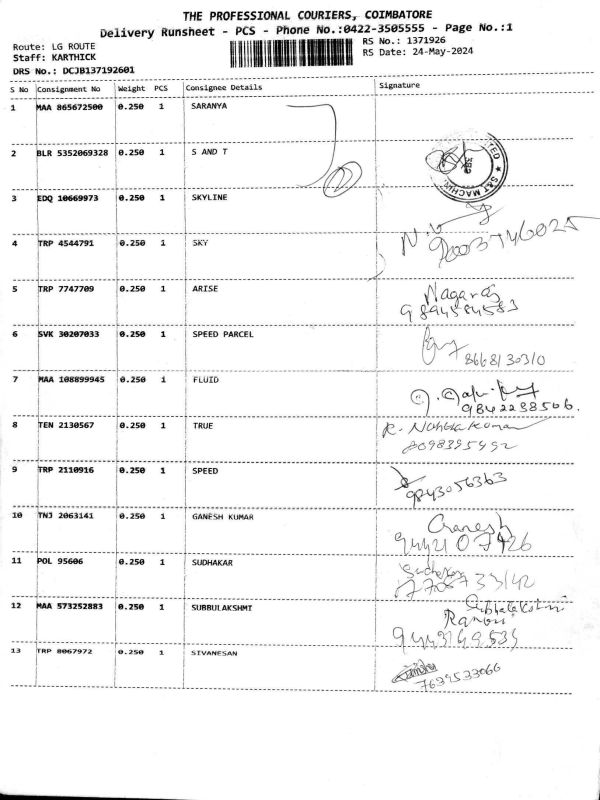 THE PROFESSIONAL COURIERS, COIMBATORE
Delivery Runsheet - PCS - Phone No.:0422-3505555 - Page No.:1
Route: LG ROUTE
Staff: KARTHICK
DRS No.: DCJB137192601
RS No.: 1371926
RS Date: 24-May-2024
S No Consignment No Weight PCS Consignee Details Signature
1 MAA 865672500 0.250 1 SARANYA
2 BLR 5352069328 0.250 1 S AND T
3 EDQ 10669973 0.250 1 SKYLINE
4 TRP 4544791 0.250 1 SKY
5 TRP 7747709 0.250 1 ARISE Nagaraj
9894584583
6 SVK 30207033 0.250 1 SPEED PARCEL
8668130310
7 MAA 108899945 0.250 1 FLUID
9842238506.
8 TEN 2130567 0.250 1 TRUE
8098395492
9 TRP 2110916 0.250 1 SPEED
9843056363
10 TNJ 2063141 0.250 1 GANESH KUMAR Ganesh
9442107426
11 POL 95606 0.250 1 SUDHAKAR Sudhakar
12 MAA 573252883 0.250 1 SUBBULAKSHMT
13 TRP 8067972 0.250 1 SIVANESAN
7639533066